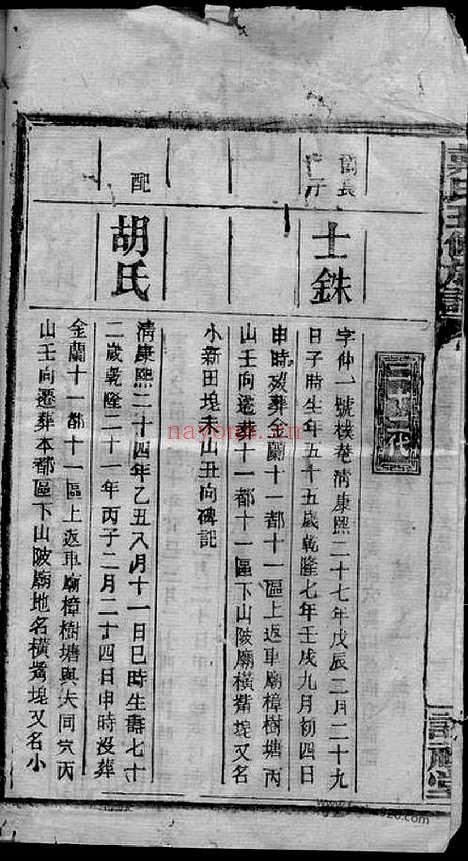 二十二代
長子
士銖
字仲一號樸菴淸康熙二十七年戊辰二月二十九
日子時生年五十五歲乾隆七年壬戌九月初四日
申時歿葬金蘭十一都十一區上返車廟樟樹塘丙
山壬向遷葬十一都十一區下山陂廟橫觜堍又名
小新田堍未山丑向碑記
配
胡氏
淸康熙二十四年乙丑八月十一日巳時生壽七十
二歲乾隆二十一年丙子二月二十四日申時沒葬
金蘭十一都十一區上返車廟樟樹塘與夫同穴丙
山壬向遷葬本都區下山陂廟地名橫觜堍又名小
氏五修族譜